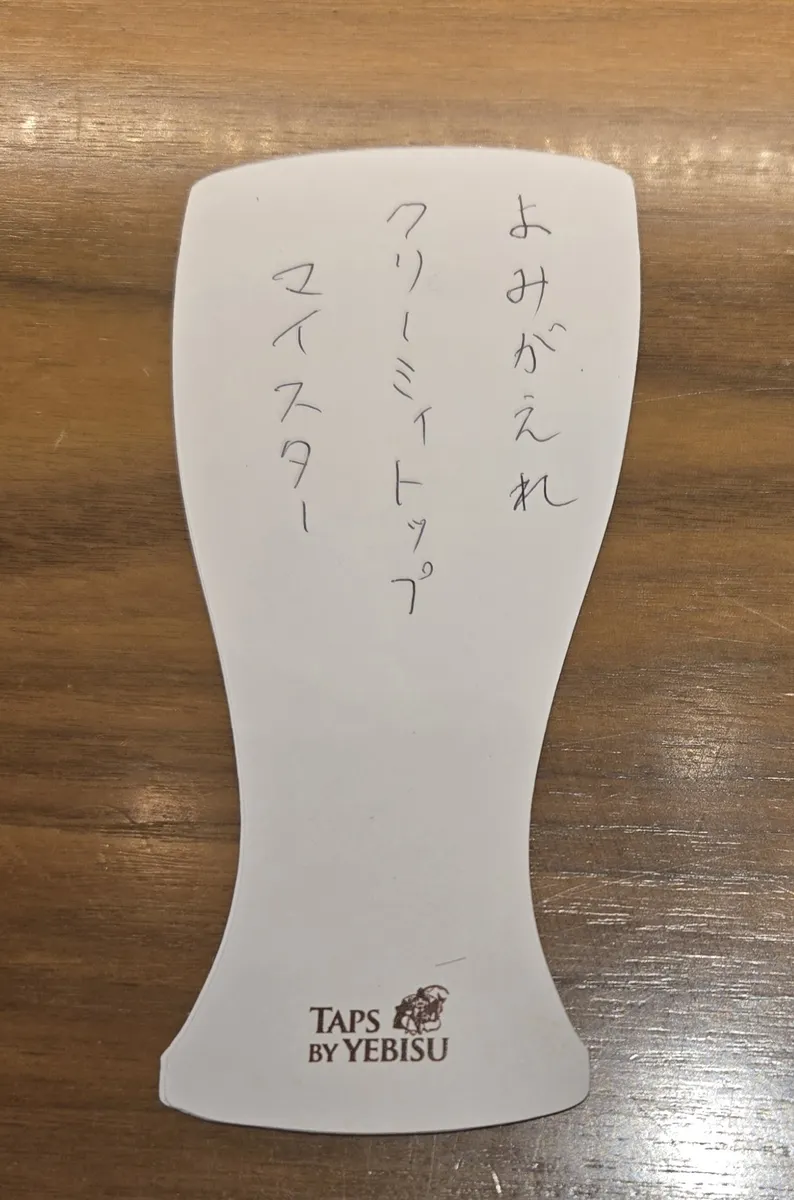 よみがえれ
クリーミィトップ
マイスター
TAPS
BY YEBISU